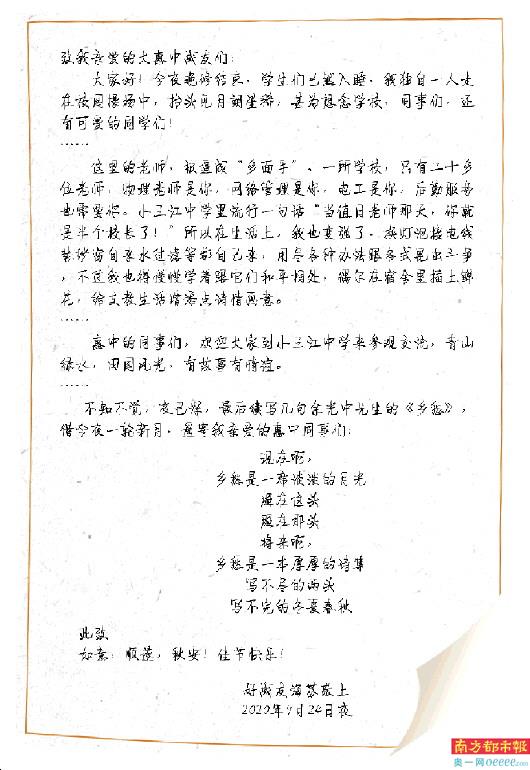 致我亲爱的大惠中战友们：
大家好！今夜晚修结束，学生们已进入睡，我独自一人走
在校园操场中，抬头见月朗星稀，甚为想念学校，同事们，还
有可爱的同学们！
……
这里的老师，报道成“多面手”、一所学校，只有二十多
位老师，物理老师是你，网络管理是你，电工是你，后勤服务
也需要你。小三江中学里流行一句话“当值日老师那天，你就
是半个校长了！”所以在生活上，我也变强了。换灯泡接电线
装纱窗自来水过滤等都自己来，用尽各种办法跟各式昆虫斗争
，不过我也得慢慢学着跟它们和平相处，偶尔在宿舍里插上鲜
花，给支教生活增添点诗情画意。
……
惠中的同事们，欢迎大家到小三江中学来参观交流，青山
绿水，田园风光，有故事有情谊。
……
不知不觉，夜已深，最后续写几句余光中先生的《乡愁》，
借今夜一轮新月，遥寄我亲爱的惠中同事们：
现在啊，
乡愁是一席淡淡的月光
照在这头
照在那头
将来啊，
乡愁是一本厚厚的诗集
写不尽的两头
写不完的冬夏春秋
此致
如意，顺遂，秋安！佳节快乐！
好战友海基敬上
2020年9月24日夜
南方都市报
奥一网oeeee.com